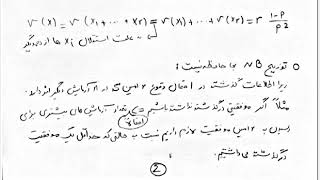 V(X) = V(X₁ + ... + Xr) = V(X₁) + ... + V(Xr) = r (1-P)/P²
به علت استقلال Xi ها از یکدیگر
○ توزیع NB بی حافظه نیست:
زیرا اطلاعات گذشته در احتمال وقوع r امین S در آزمایش اثر گذارد.
مثلاً اگر موفقیتی در گذشته نداشته باشیم تعداد آزمایش های بیشتری برای
رسیدن به r امین موفقیت لازم داریم نسبت به حالتی که حداقل یک موفقیت
در گذشته می داشتیم.
2